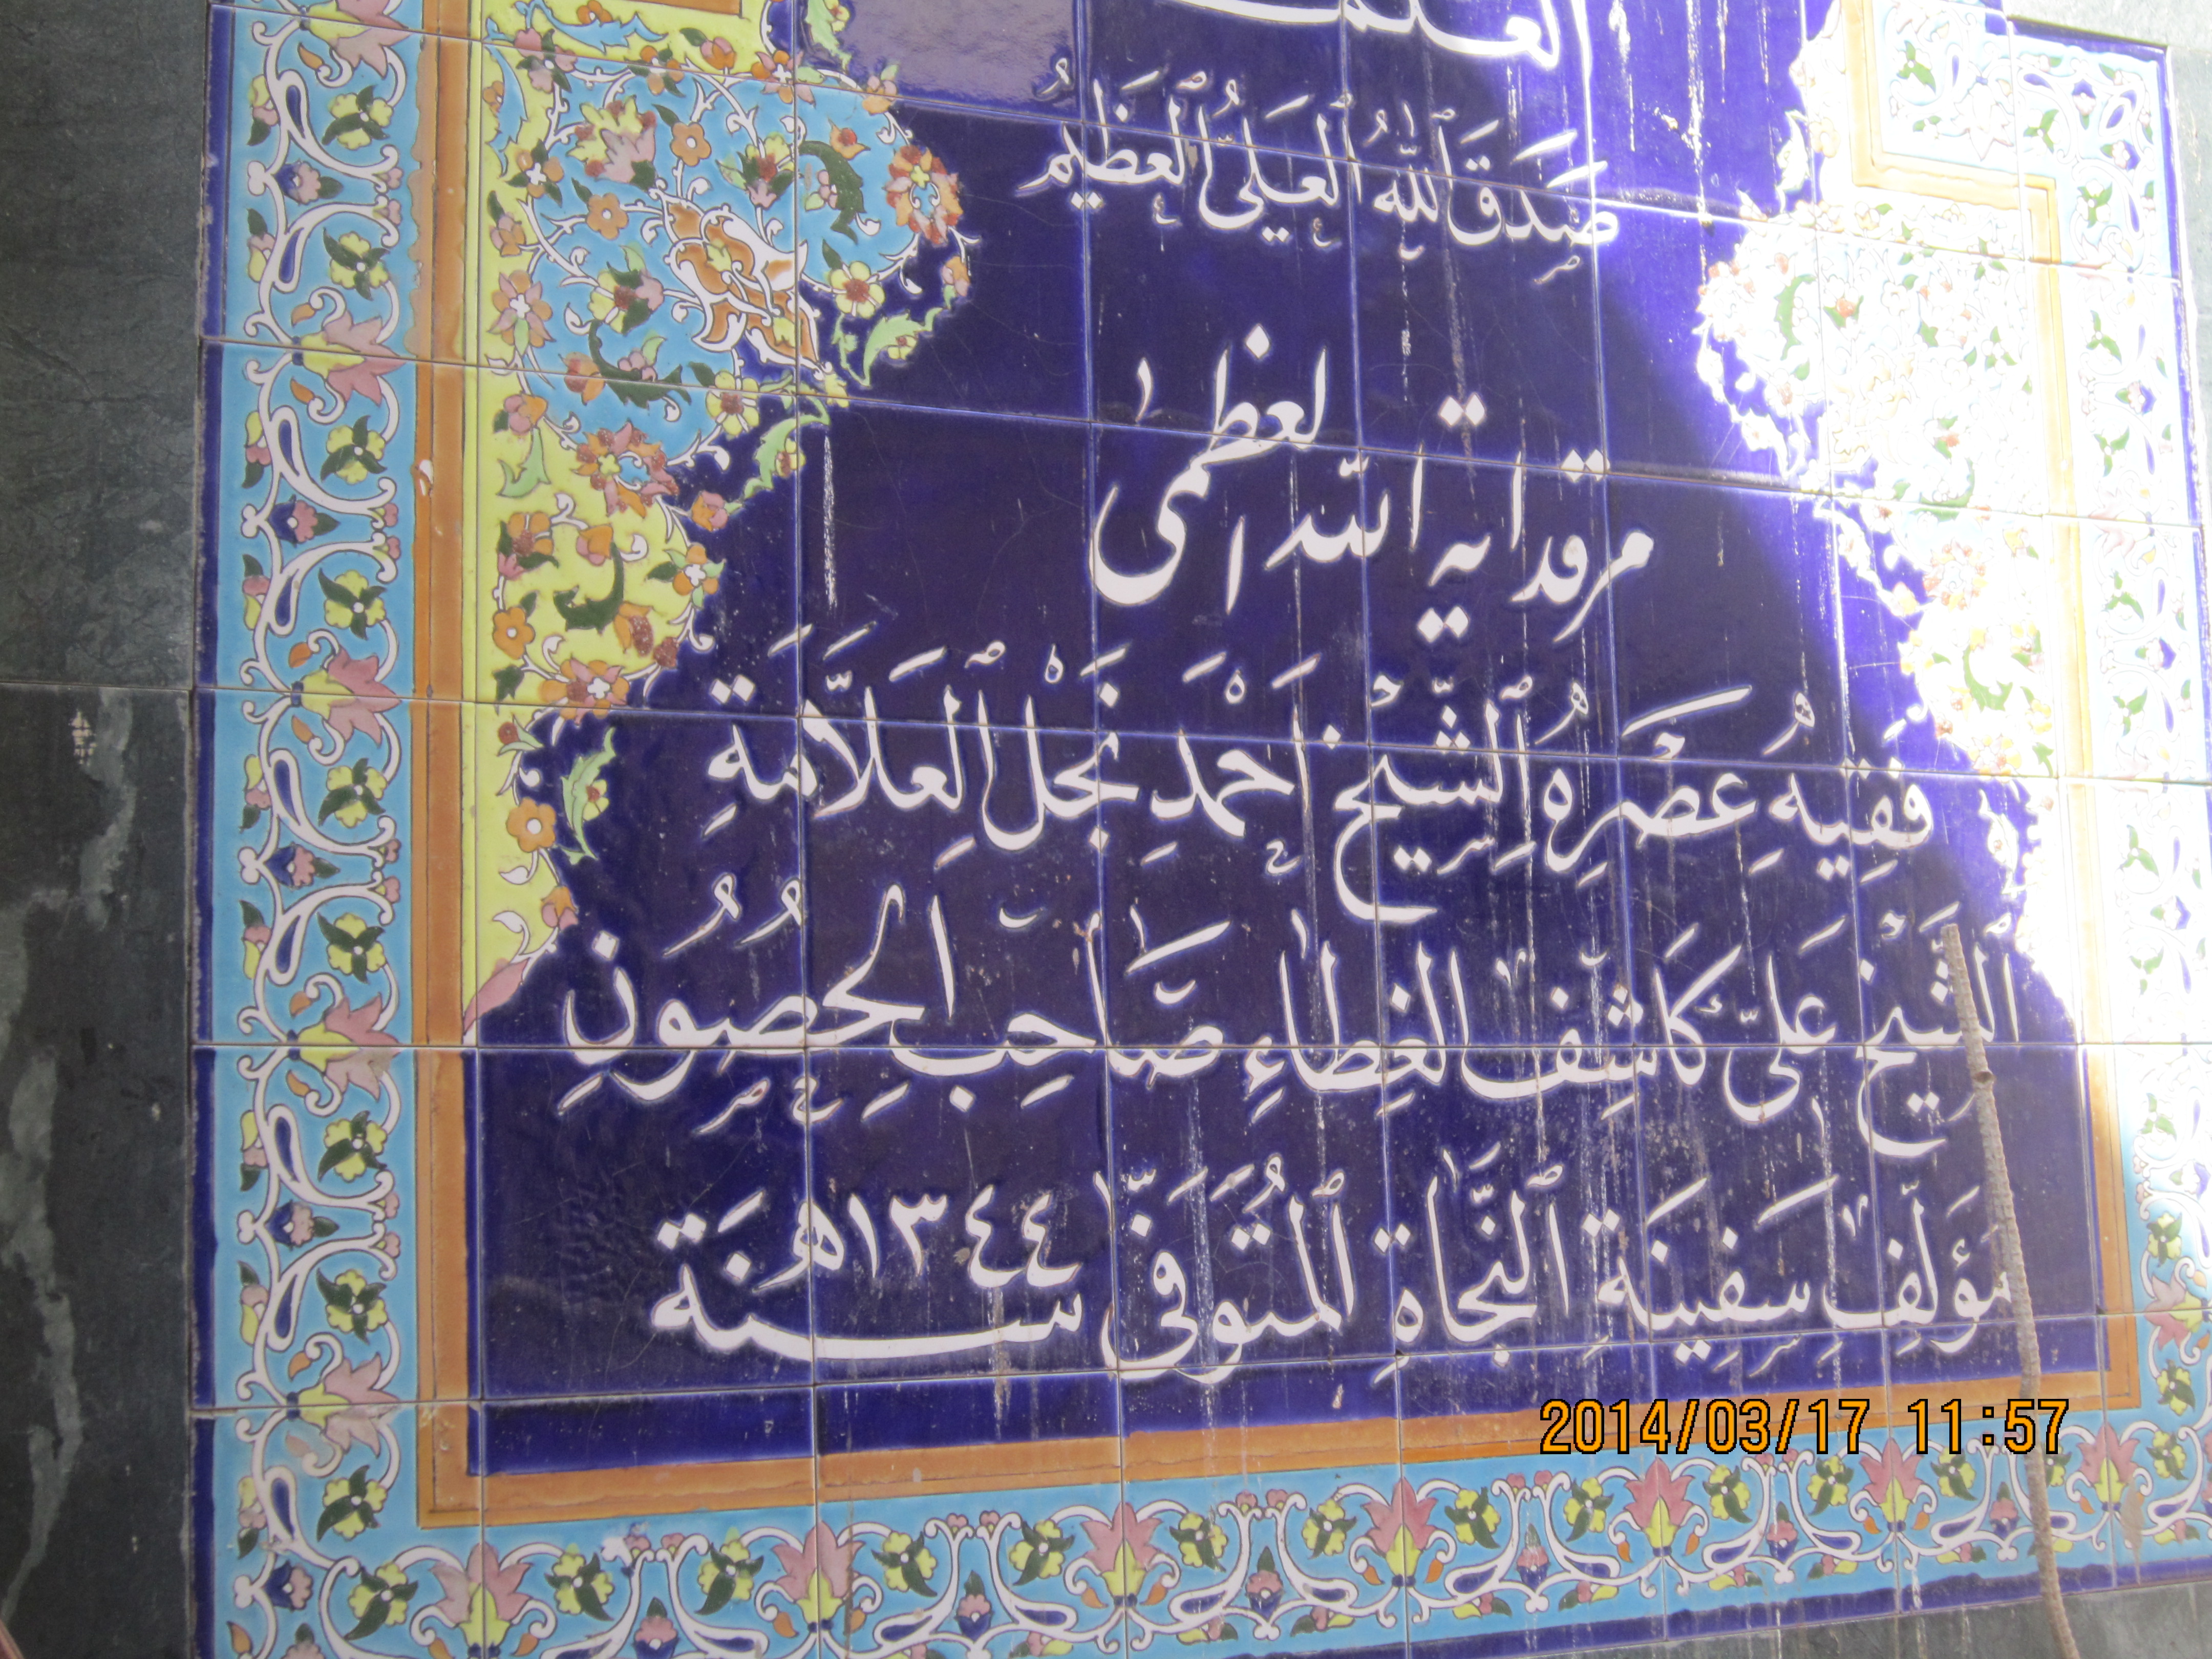 العلمـ
صَدَقَ اللهُ العَلِيُّ العَظِيمُ
مرقد اية الله العظمى
فَقِيهِ عَصْرِهِ الشِّيْخِ أَحْمَدِ نَجْلِ العَلَّامَةِ
الشَّيْخ عَلِيّ كَاشِفِ الغِطَاءِ صَاحِبِ الحُصُونِ
مؤلّفِ سَفِينَةِ النَّجَاةِ المُتَوَفّى سنَة ١٣٤٤هـ
2014/03/17 11:57